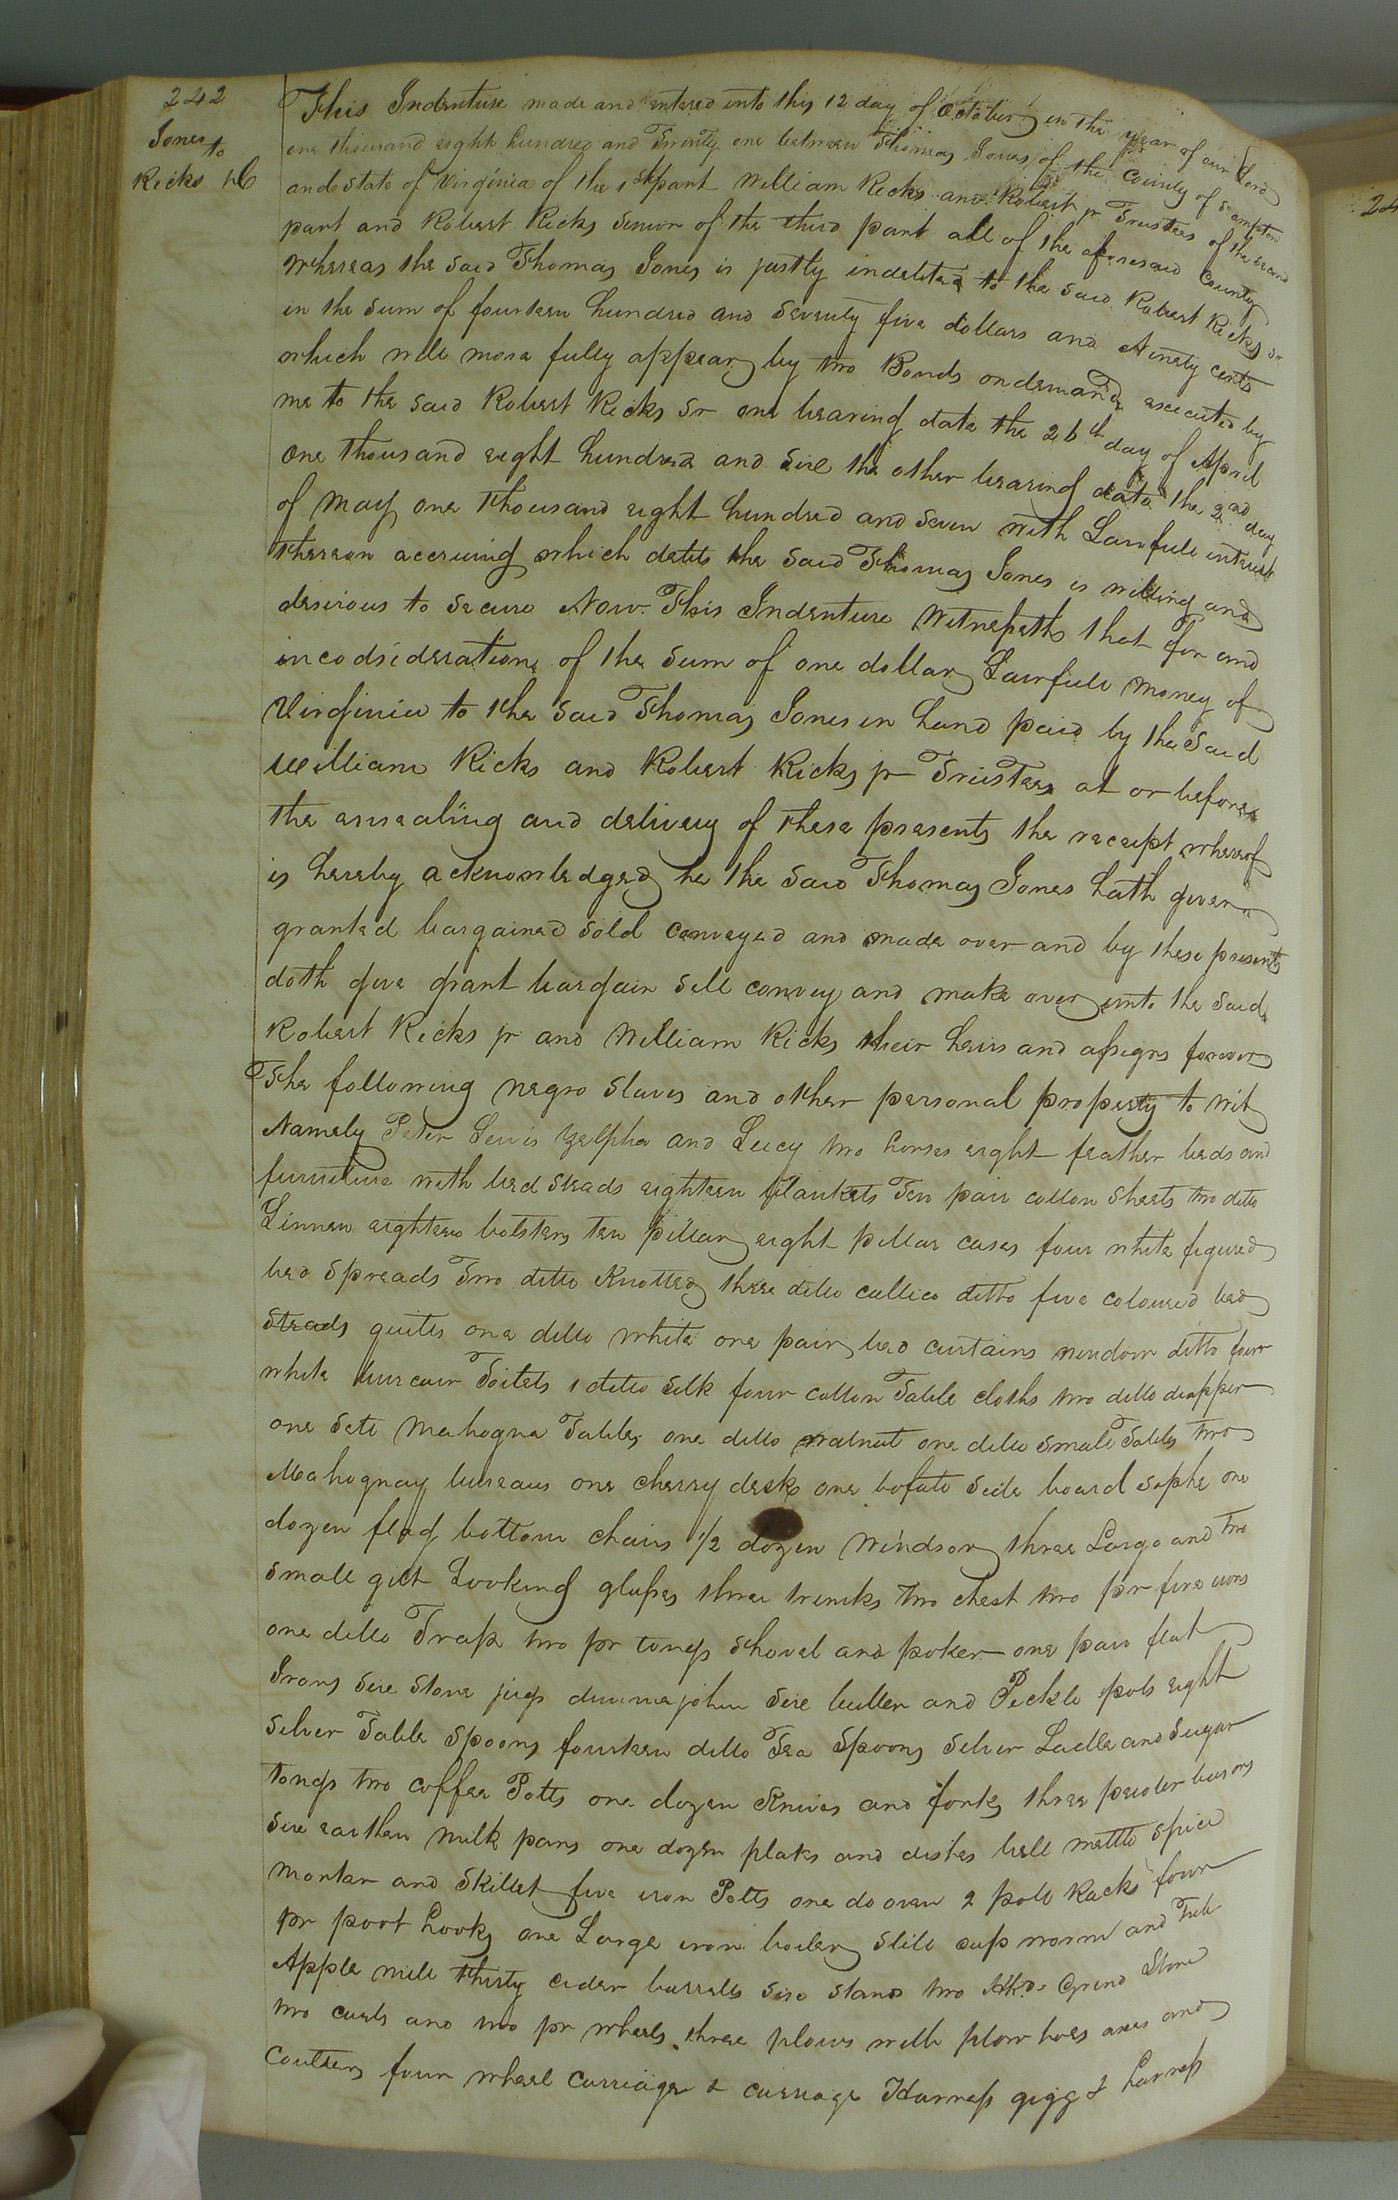 242
Jones
to
Ricks
24
This Indenture made and entered into this 12 day of October in the year of our Lord
one thousand eight hundred and Twenty one between Thomas Jones of the County of S ampton
and State of Virginia of the 1st part William Ricks and Robert jr Trustees of the second
part and Robert Ricks Senior of the third part all of the aforesaid County
Whereas the said Thomas Jones is justly indebted to the said Robert Ricks Sr
in the sum of fourteen hundred and seventy five dollars and Ninety cents
which will more fully appear by two Bonds on demand executed by
me to the said Robert Ricks Sr one bearing date the 26th day of April
one thousand eight hundred and six the other bearing date the 2nd day
of May one thousand eight hundred and seven with Lawfull interest
thereon accruing which debts the said Thomas Jones is willing and
desirous to secure Now This Indenture Witnesseth that for and
in codsideration of the sum of one dollar Lawfull money of
Virginia to the said Thomas Jones in hand paid by the said
William Ricks and Robert Ricks jr Trustees at or before
the ensealing and delivery of these presents the receipt whereof
is hereby acknowledged he the said Thomas Jones hath given
granted bargained sold conveyed and made over and by these presents
doth give grant bargain sell convey and make over unto the said
Robert Ricks jr and William Ricks their heirs and assigns forever
The following negro slaves and other personal property to wit
Namely Peter Lewis Zelpha and Lucy two horses eight feather beds and
furniture with bed steads eighteen blankets Ten pair cotton sheets two ditto
Linnen eighteen bolsters ten pillar eight pillar cases four white figured
bed spreads Two ditto Knotted three ditto callico ditto five coloured bed
steads quilts one ditto white one pair bed curtains window ditto four
white bureau Toilets 1 ditto silk four cotton Table cloths two ditto diapper
one sett Mahogna Tables one ditto walnut one ditto small Tables two
Mahognay bureaus one cherry desk one bofatt side board sopha one
dozen flag bottom chairs 1/2 dozen Windsor three Large and two
small gilt Looking glasses three trunks two chest two pr fire irons
one ditto Trap two pr tongs shovel and poker one pair flat
Irons six stone jugs dimmejohn six butter and Pickle pots eight
silver Table spoons fourteen ditto Tea Spoons silver Ladle and Sugar
tongs two coffee Potts one dozen Knives and forks three pewter basons
six earthen milk pans one dozen plates and dishes bell mettle spice
mortar and skillet five iron Potts one do oven 2 pott Racks four
pr poot hooks one Large iron boiler still cap worm and Tub
Apple mill thirty cider barrells six stand two Hhds Grind stone
two carts and two pr wheels three plows with plow hoes axes and
Coulters four wheel carriage & carriage Harness gigg & harness